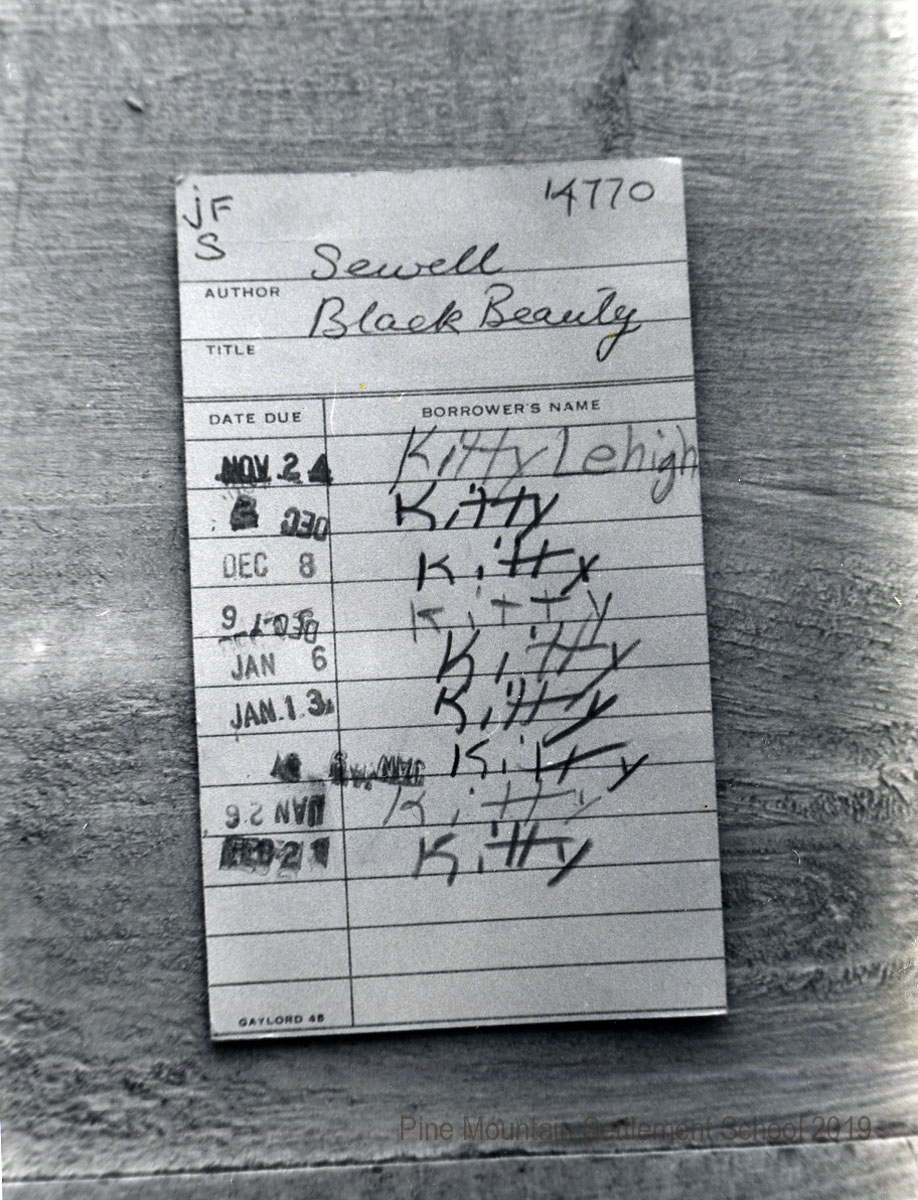 jF 14770
S
Sewell
AUTHOR
Black Beauty
TITLE
DATE DUE BORROWER'S NAME
NOV. 24 Kitty Lehigh
DEC Kitty
DEC 8 Kitty
DEC Kitty
JAN 6 Kitty
JAN. 13 Kitty
JAN Kitty
JAN 26 Kitty
Kitty
GAYLORD 48
Pine Mountain Settlement School 2019